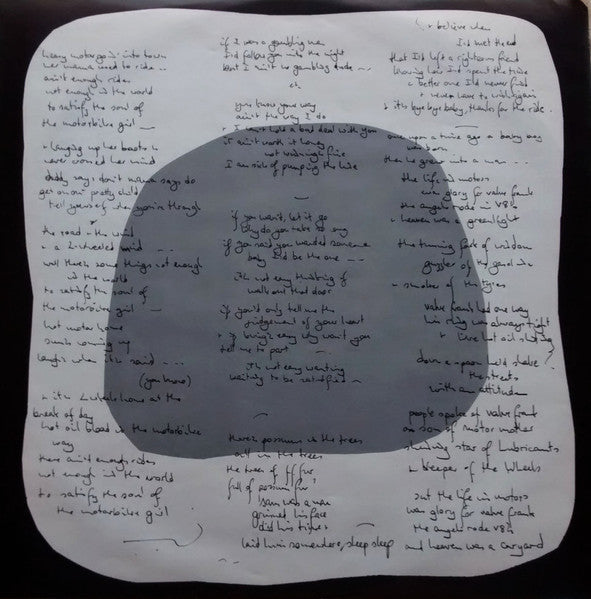 heavy motor goin' into town
her mama used to ride ..
ain't enough rides
not enough in the world
to satisfy the soul of
the motorbike girl —
hanging up her boots
never crossed her mind
daddy says don't mama says do
get on out pretty child
tell yourself when you're through
the road & the wind
& a 2-wheeled mind ---
well there's some things not enough
in the world
to satisfy the soul of
the motorbike girl —
hot motor home
sun's coming up
laughs when it's said ---
(you know)
& it's 2 wheels home at the
break of day
hot oil blood in the motorbike
way
there ain't enough rides
not enough in the world
to satisfy the soul of
the motorbike girl
if I was a gambling man
I'd follow you into the night
but I ain't no gambling dude ---
oh
you know your way
ain't the way I do
& I can't hold a bad deal with you
it ain't worth it honey
not with such fire
I am sick of pumping the
—
if you want, let it go
why do you take so long
if you said you wanted someone
baby I'd be the one ---
it's not easy thinking of
walk out that door
if you'd only tell me the
judgement of your heart
& if being's easy why want you
tell me to part —.
it's not easy waiting
waiting to be satisfied ~
there's possums in the trees
all in the trees
the trees of fff fur
full of possum fur
sam was a man
grinned his face
did his time
laid him somewhere, sleep sleep
& believe when
I'd met the end
that I'd left a righteous friend
knowing how I'd spent the time
a better one I'd never find
& never have to wish again
& it's bye bye baby, thanks for the ride.
once upon a time ago a baby boy
was born
then he grew into a man ---
the life in motors
was glory for valve frank
the angels rode in V8's
& heaven was a green light
the tuning fork of wisdom
guzzler of the good
& smoker of the tyres
valve frank had one way
his ring was always tight
& line hot oil
down a spoon he'd shake
the streets
with an attitude
people spoke of valve frank
as son of motor mother
shining star of Lubricants
& keeper of the Wheels
but the life in motors
was glory for valve frank
the angels rode V8's
and heaven was a caryard